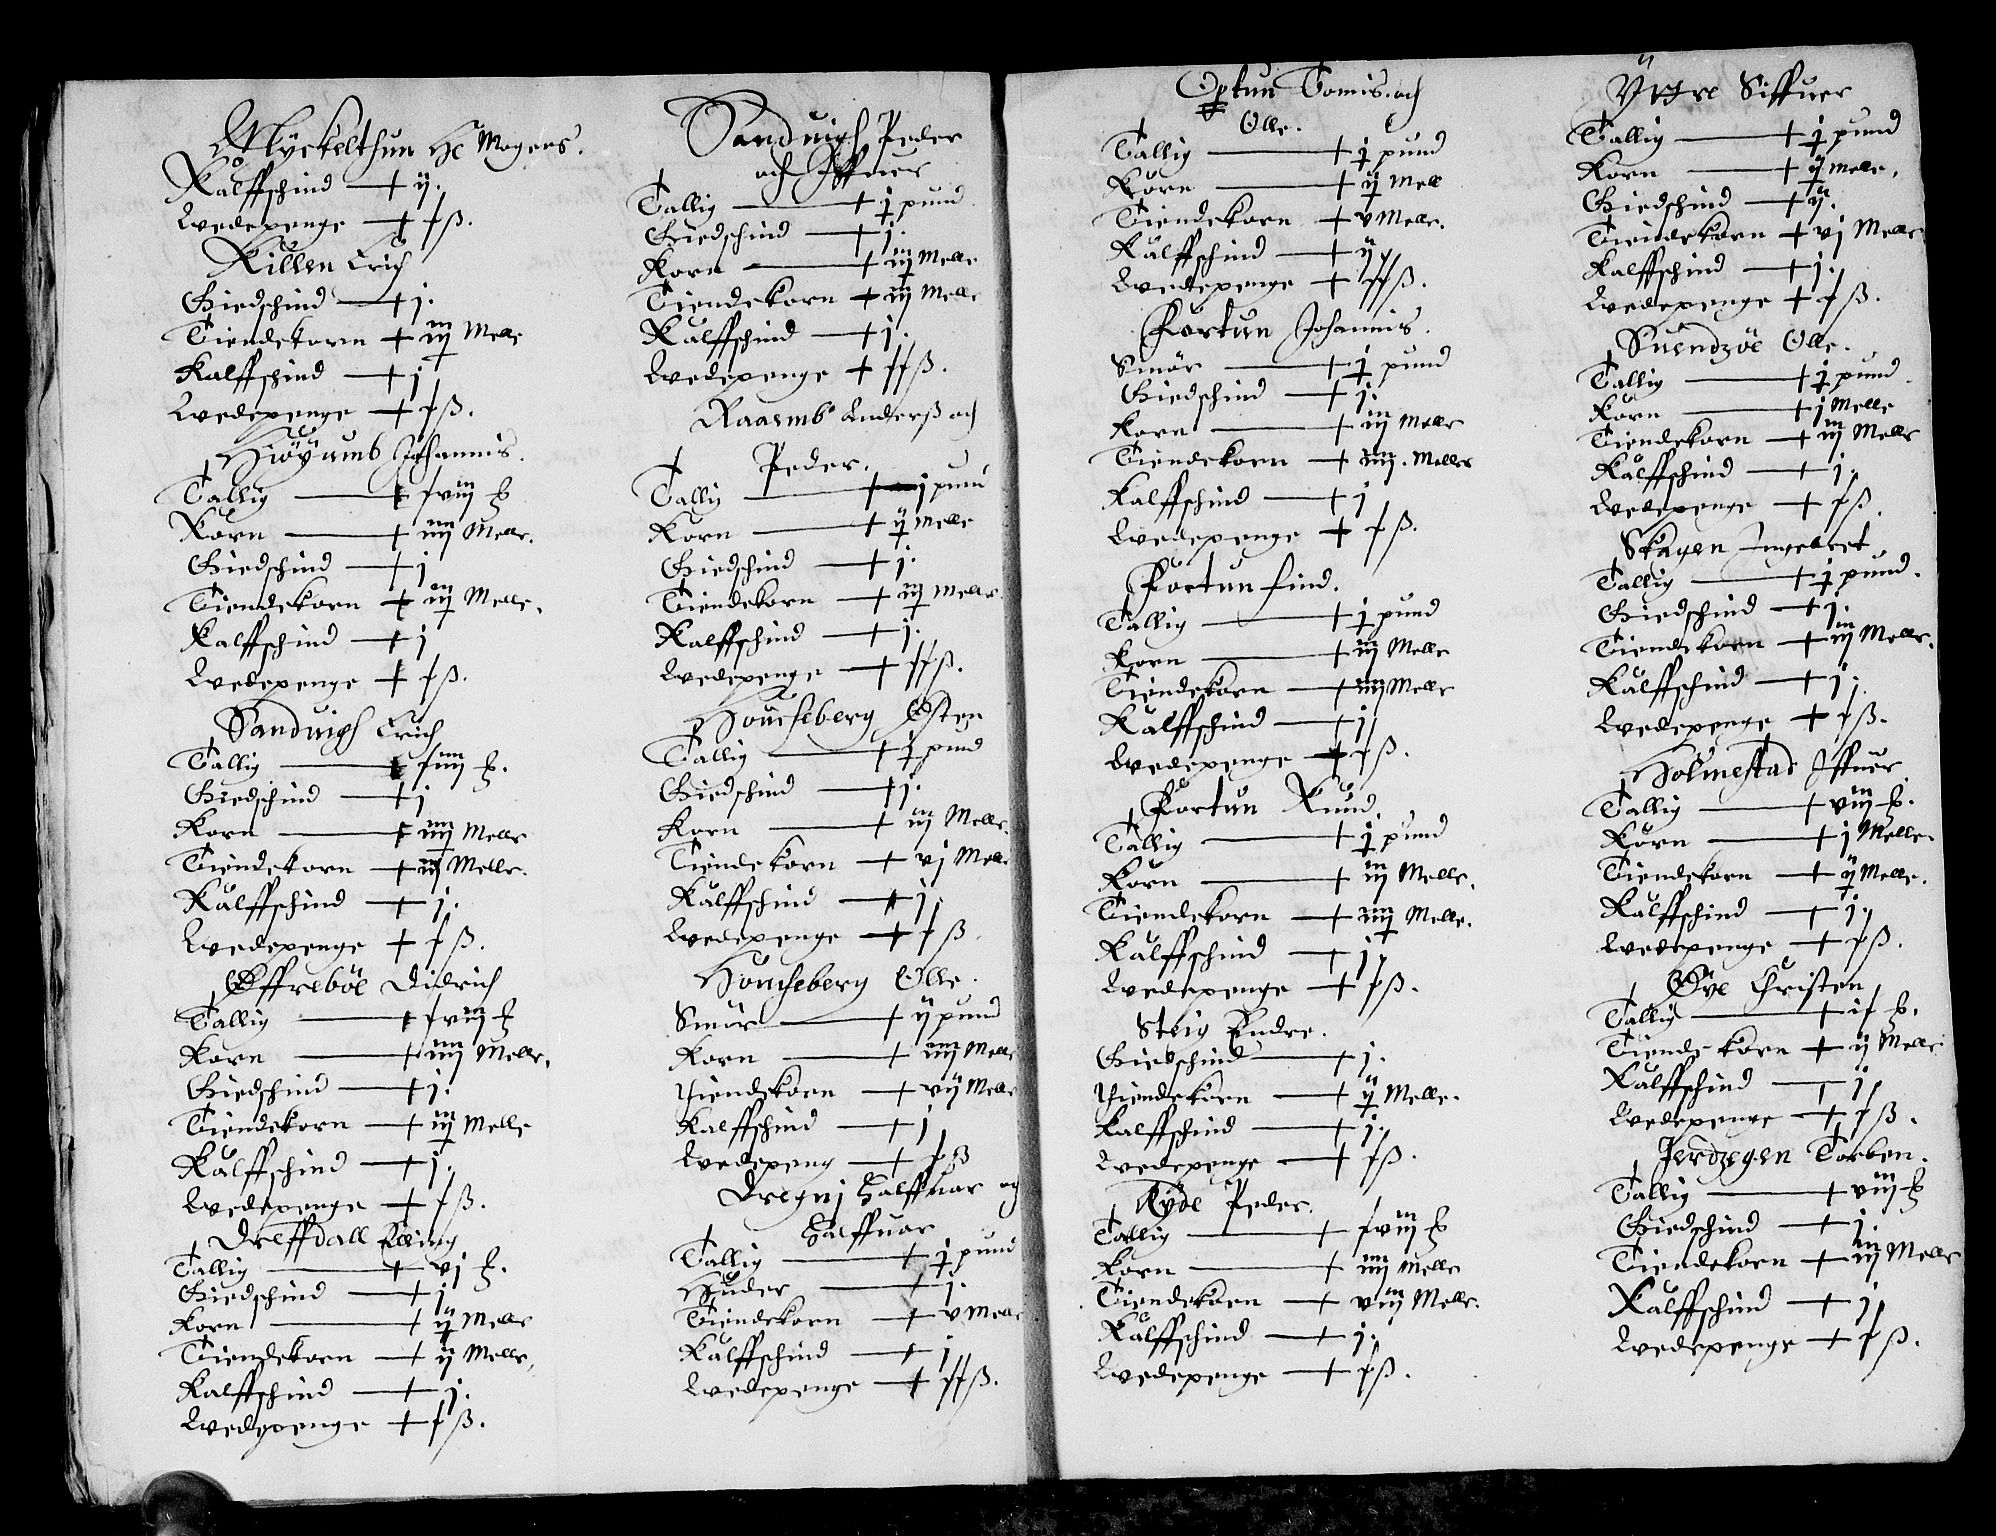 Myckelthun He Mogens.
Kalffschind — ij.
Ledepenge — f ß.
Killen Erich
Giedschind — j.
Tiendekorn — iij Melle
Kalffschind — j
Ledepenge — f ß.
Høyumb Johannis.
Tallig — fviij
Korn — iiij Melle.
Giedschind — j
Tiendekorn — iij Melle.
Kalffschind — j
Ledepenge — f ß.
Sanduigh Erich
Tallig — fiiij
Giedschind — j
Korn — iiij Melle
Tiendekorn — iij Melle.
Kalffschind — j.
Ledepenge — f ß.
Effreböe Didrich
Tallig — fviij
Korn — iiij Melle.
Giedschind — j.
Tiendekorn — iij Melle
Kalffschind — j.
Ledepenge — f ß.
Dreffdall Elling
Tallig — vj
Giedschind — j
Korn — ij Melle
Tiendekorn — ij Melle.
Kalffschind — j.
Ledepenge — f ß.
Sanduigh Peder
och Iffuer
Tallig — j pund
Giedschind — j.
Korn — iij Melle
Tiendekorn — iij Melle
Kalffschind — j.
Ledepenge — ff ß.
Raaumb Anderß och
Peder.
Tallig — j pund
Korn — ij Melle
Giedschind — j.
Tiendekorn — iij Melle.
Kalffschind — j.
Ledepenge — ff ß.
Houcheberg Østen
Tallig — j pund
Giedschind — j.
Korn — iij Melle.
Tiendekorn — vj Melle
Kalffschind — j.
Ledepenge — f ß.
Houcheberg Olle.
Smör — ij pund
Korn — iiij Melle
Tiendekorn — vij Melle
Kalffschind — j
Ledepeng — f ß
Dregnj Halffuar og
Halffuar
Tallig — j pund
Huder — j.
Tiendekorn — v Melle
Kalffschind — j
Ledepenge — ff ß.
Optun Tomis. och
Olle.
Tallig — j pund
Korn — ij Mell
Tiendekorn — v Melle.
Kalffschind — ij
Ledepenge — ff ß.
Fortun Johannis.
Smör — j pund
Giedschind — j.
Korn — iij Melle
Tiendekorn — iiij. Melle
Kalffschind — j
Ledepenge — f ß.
Fortun find.
Tallig — j pund
Korn — iij Melle
Tiendekorn — iiij Melle
Kalffschind — j
Ledepenge — f ß.
Fortun Knud.
Tallig — j pund
Korn — iij Melle.
Tiendekorn — iiij Melle.
Kalffschind — j
Ledepenge — f ß.
Steig Endre.
Giedschind — j.
Tiendekorn — ij Melle.
Kalffschind — j.
Ledepenge — f ß.
Eyde Peder.
Tallig — fviij
Korn — iiij Melle
Tiendekorn — viij Melle.
Kalffschind — j.
Ledepenge — f ß.
Yttre Siffuer
Tallig — j pund
Korn — ij Melle.
Giedschind — ij.
Tiendekorn — vj Melle
Kalffschind — j.
Ledepenge — f ß.
Suendzöe Olle.
Tallig — j pund.
Korn — j Melle
Tiendekorn — iij Melle
Kalffschind — j.
Ledepenge — f ß.
Skagen Ingebret
Tallig — j pund.
Giedschind — j.
Tiendekorn — iij Melle.
Kalffschind — j.
Ledepenge — f ß.
Holmestad Iffuer
Tallig — viij
Korn — j Melle.
Tiendekorn — ij Melle.
Kalffschind — j.
Ledepenge — f ß.
Øye Christen
Tallig — if
Tiendekorn — ij Melle
Kalffschind — j
Ledepenge — f ß.
Jerdzegen Torben.
Tallig — viij
Giedschind — j.
Tiendekorn — iij Melle
Kalffschind — j
Ledepenge — f ß.